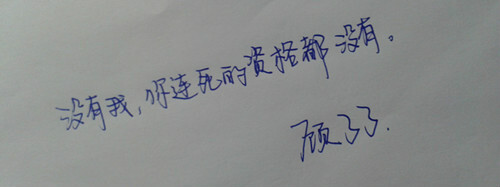 没有我，你连死的资格都没有。
顾了了.